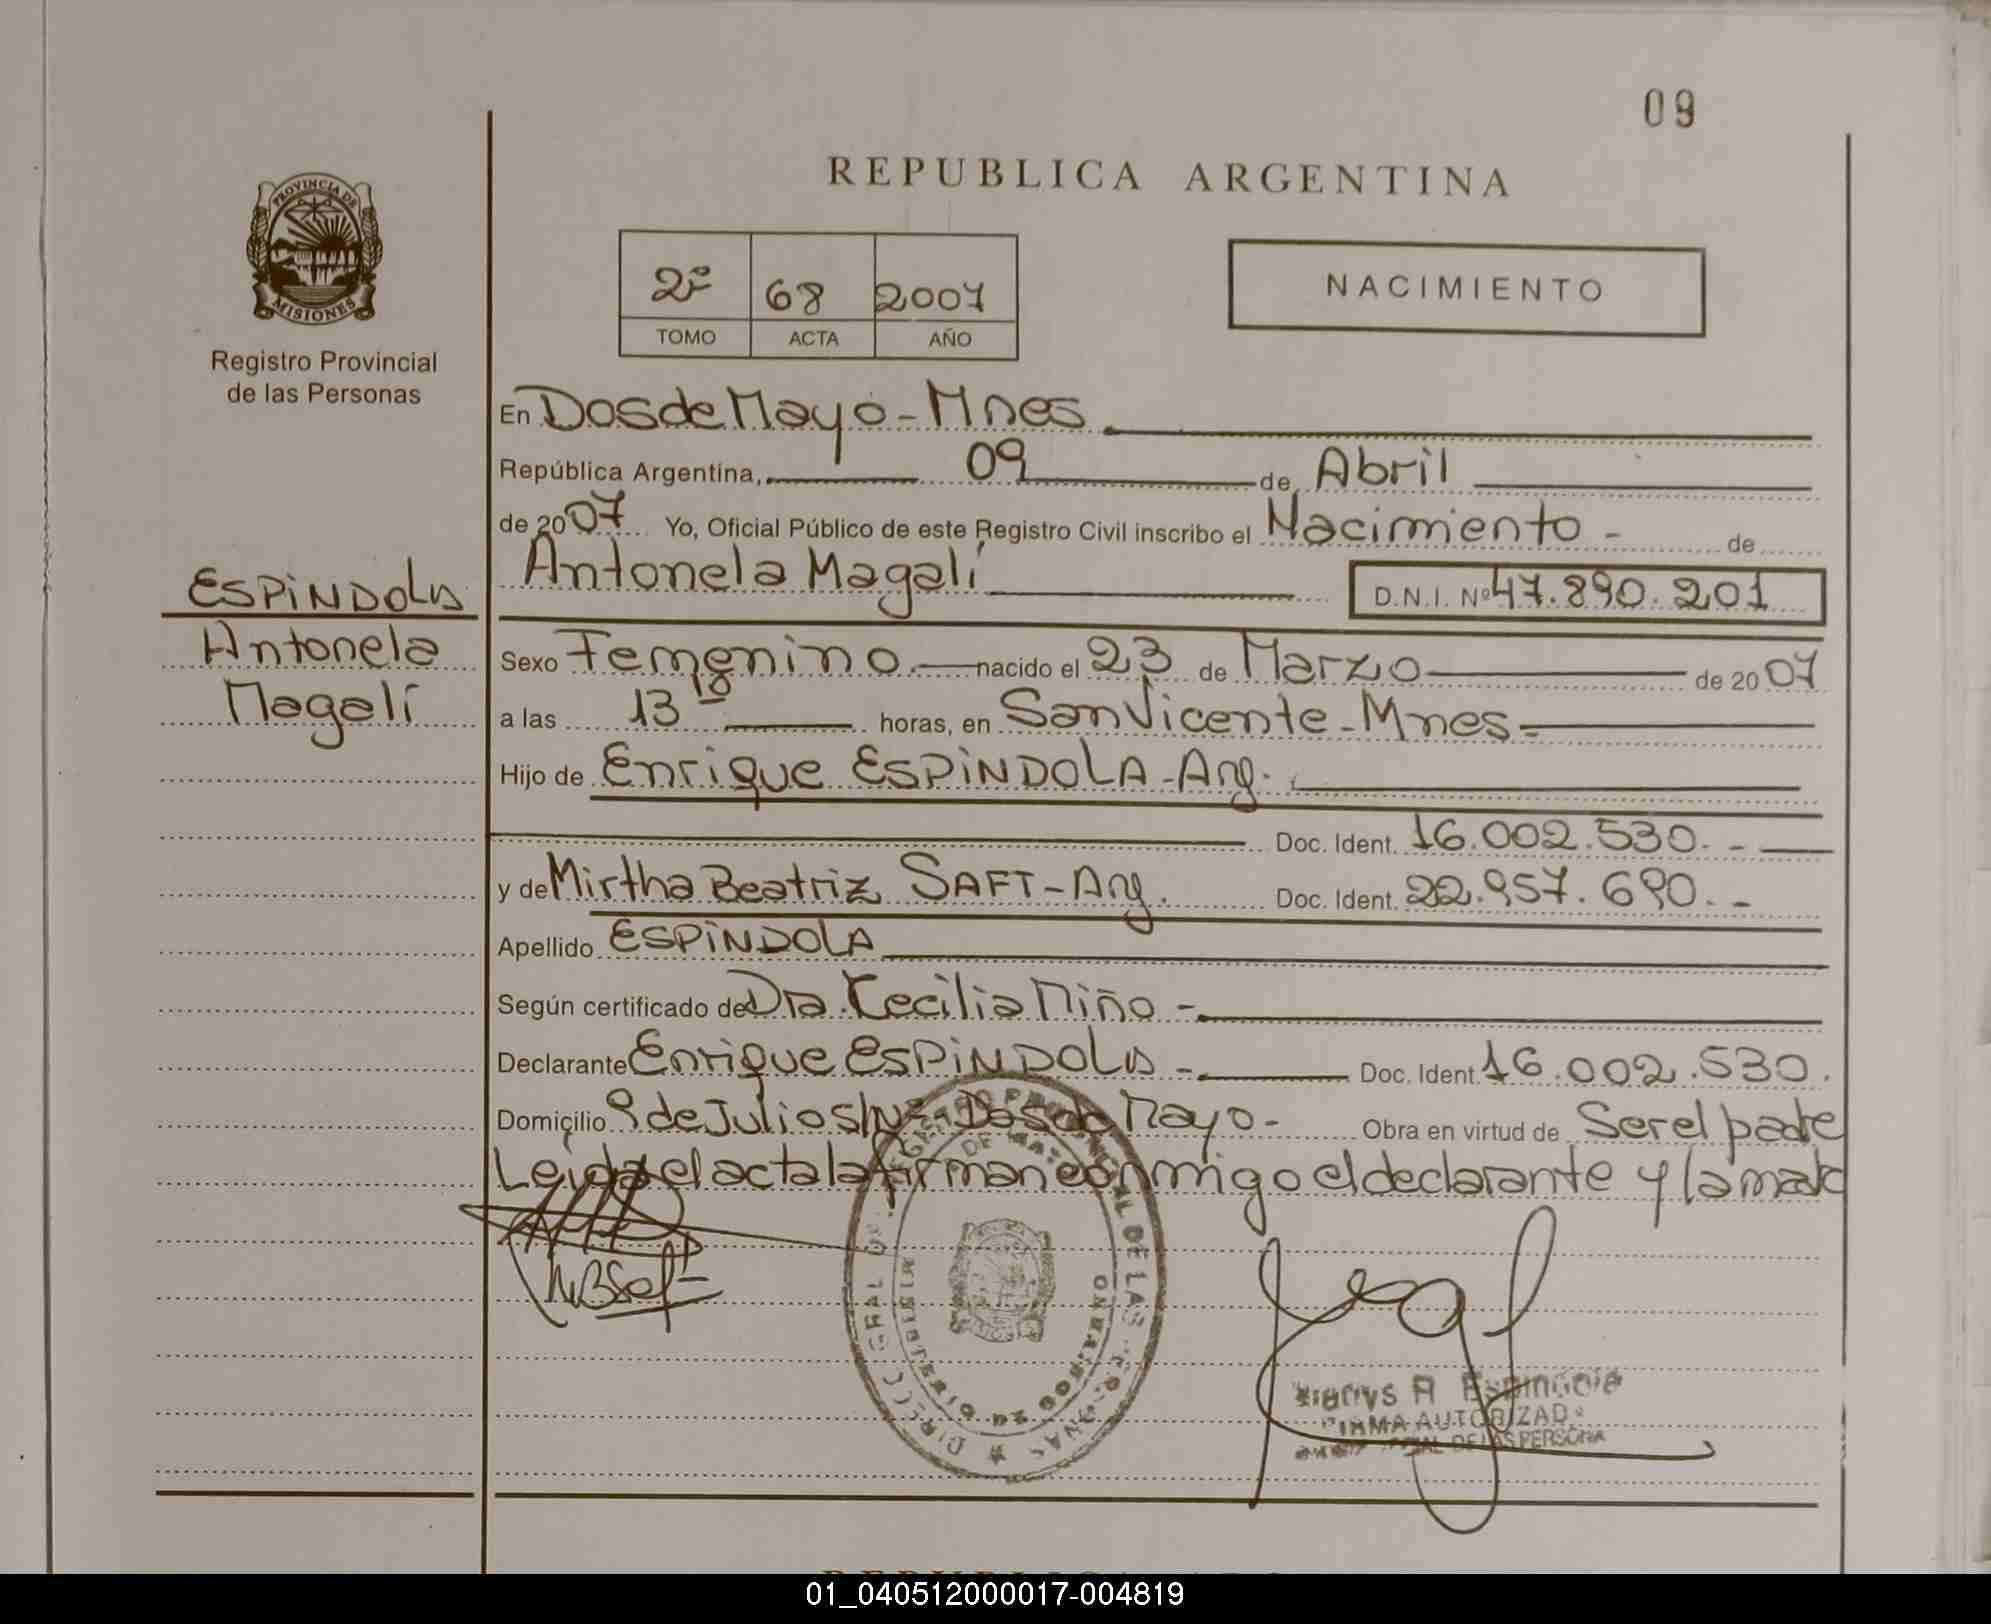 09
REPUBLICA ARGENTINA
PROVINCIA DE
MISIONES
Registro Provincial
de las Personas
2º 68 2007
TOMO ACTA AÑO
NACIMIENTO
En Dos de Mayo - Mnes
República Argentina, 09 de Abril
de 2007 Yo, Oficial Público de este Registro Civil inscribo el Nacimiento - de
Antonela Magalí D.N.I. Nº 47.890.201
ESPINDOLA
Antonela
Magalí
Sexo Femenino nacido el 23 de Marzo de 2007
a las 13 18 horas, en San Vicente - Mnes -
Hijo de Enrique ESPINDOLA - Arg.
Doc. Ident. 16.002.530. -
y de Mirtha Beatriz SAFT - Arg. Doc. Ident. 22.957.690. -
Apellido ESPINDOLA
Según certificado de Dra. Cecilia Miño -
Declarante Enrique ESPINDOLA - Doc. Ident. 16.002.530.
Domicilio 9 de Julio s/nº Dos de Mayo - Obra en virtud de Ser el padre
Leida el acta la firman conmigo el declarante y la madre
MBSaft
DE LAS
Espindola
FIRMA AUTORIZADA
DE LAS PERSONA
01_040512000017-004819